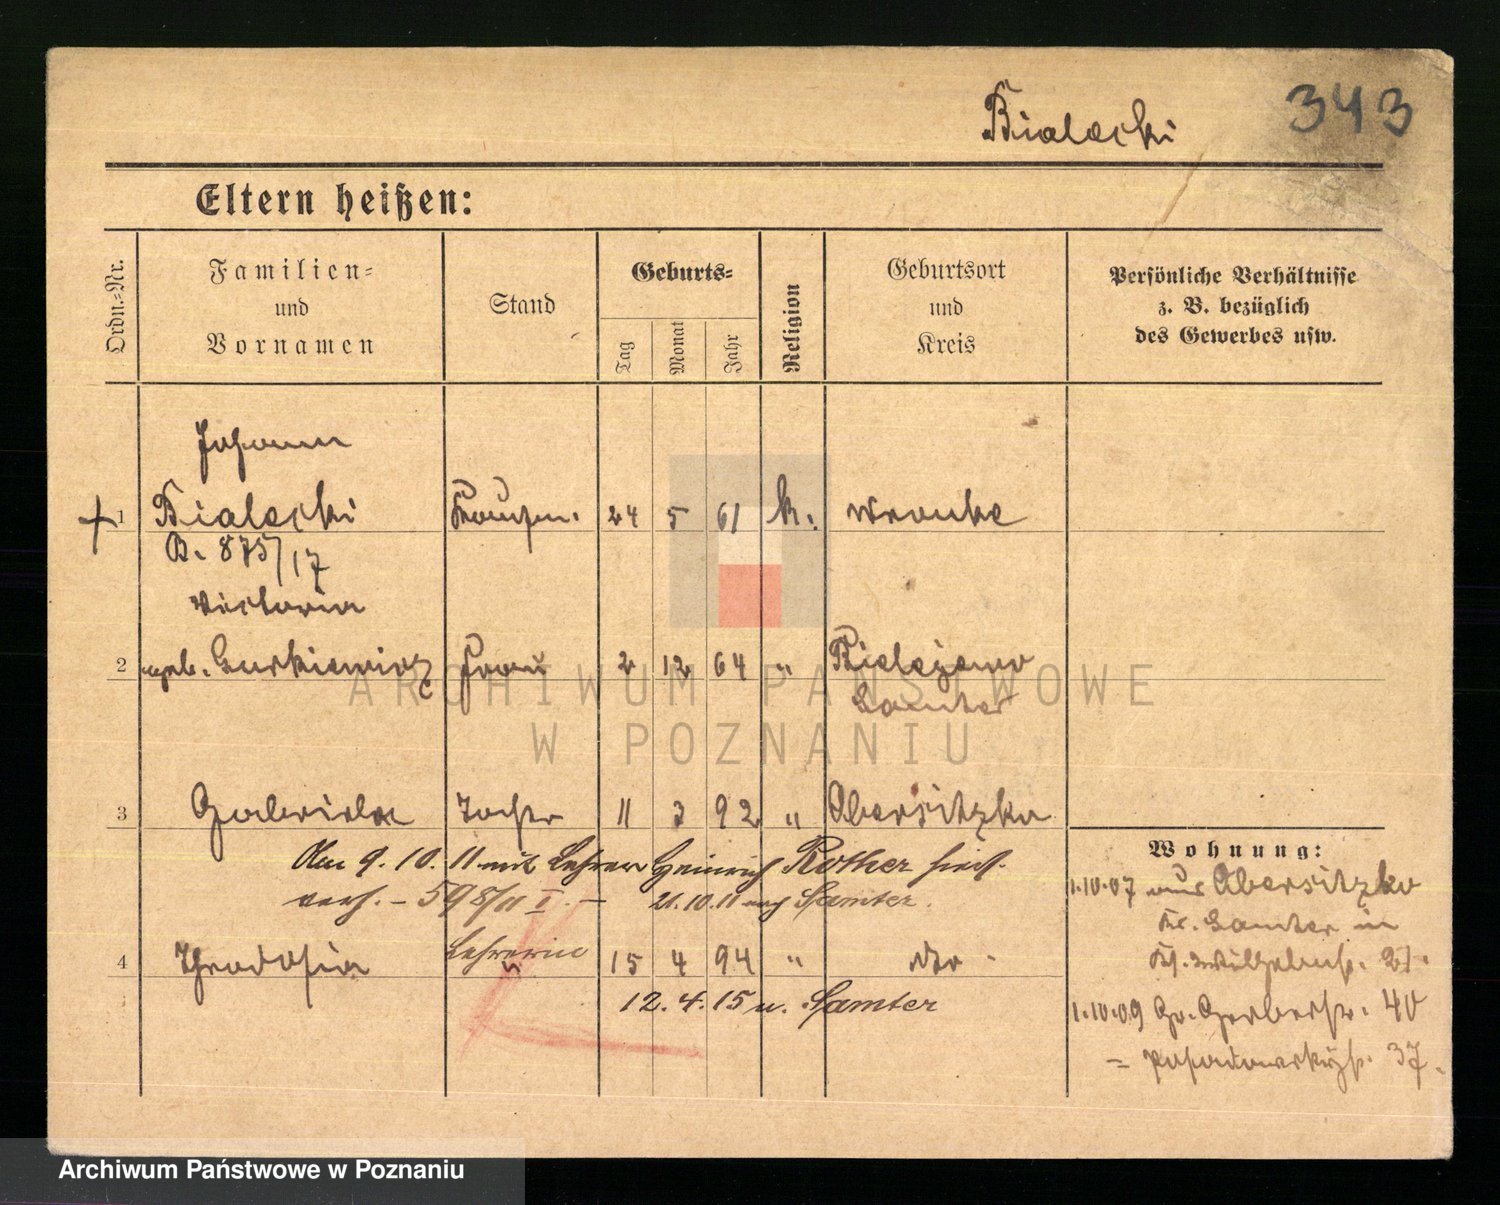 Bialecki 343
Eltern heißen:
Ordn.=Nr.
Familien=
und
Vornamen
Stand
Geburts=
Tag
Monat
Jahr
Religion
Geburtsort
und
Kreis
Persönliche Verhältnisse
z. B. bezüglich
des Gewerbes usw.
Johann
1 Bialecki 24 5 61 k. Wronke
B. 875/17
Victoria
2 geb. Frau 2 12 64 " Bialezewo
Samter
3 Gabriela Tochter 11 3 92 " Obersitzko
Am 9.10.11 mit Lehrer Heinrich Rother hies.
verh. - 598/11 I. - 21.10.11 nach Samter.
4 Theodosia Lehrerin 15 4 94 " dto.
12.4.15 n. Samter
Wohnung:
1.10.07 aus Obersitzko
Kr. Samter in
1.10.09 Gr. Gerberstr. 40
= Posadowskystr. 37.
ARCHIWUM PAŃSTWOWE
W POZNANIU
Archiwum Państwowe w Poznaniu